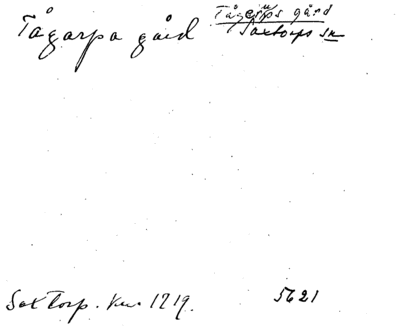 Tågarpa gård
Tågerups gård
Saxtorps sn
Saxtorp. Kv. 1719.
5621